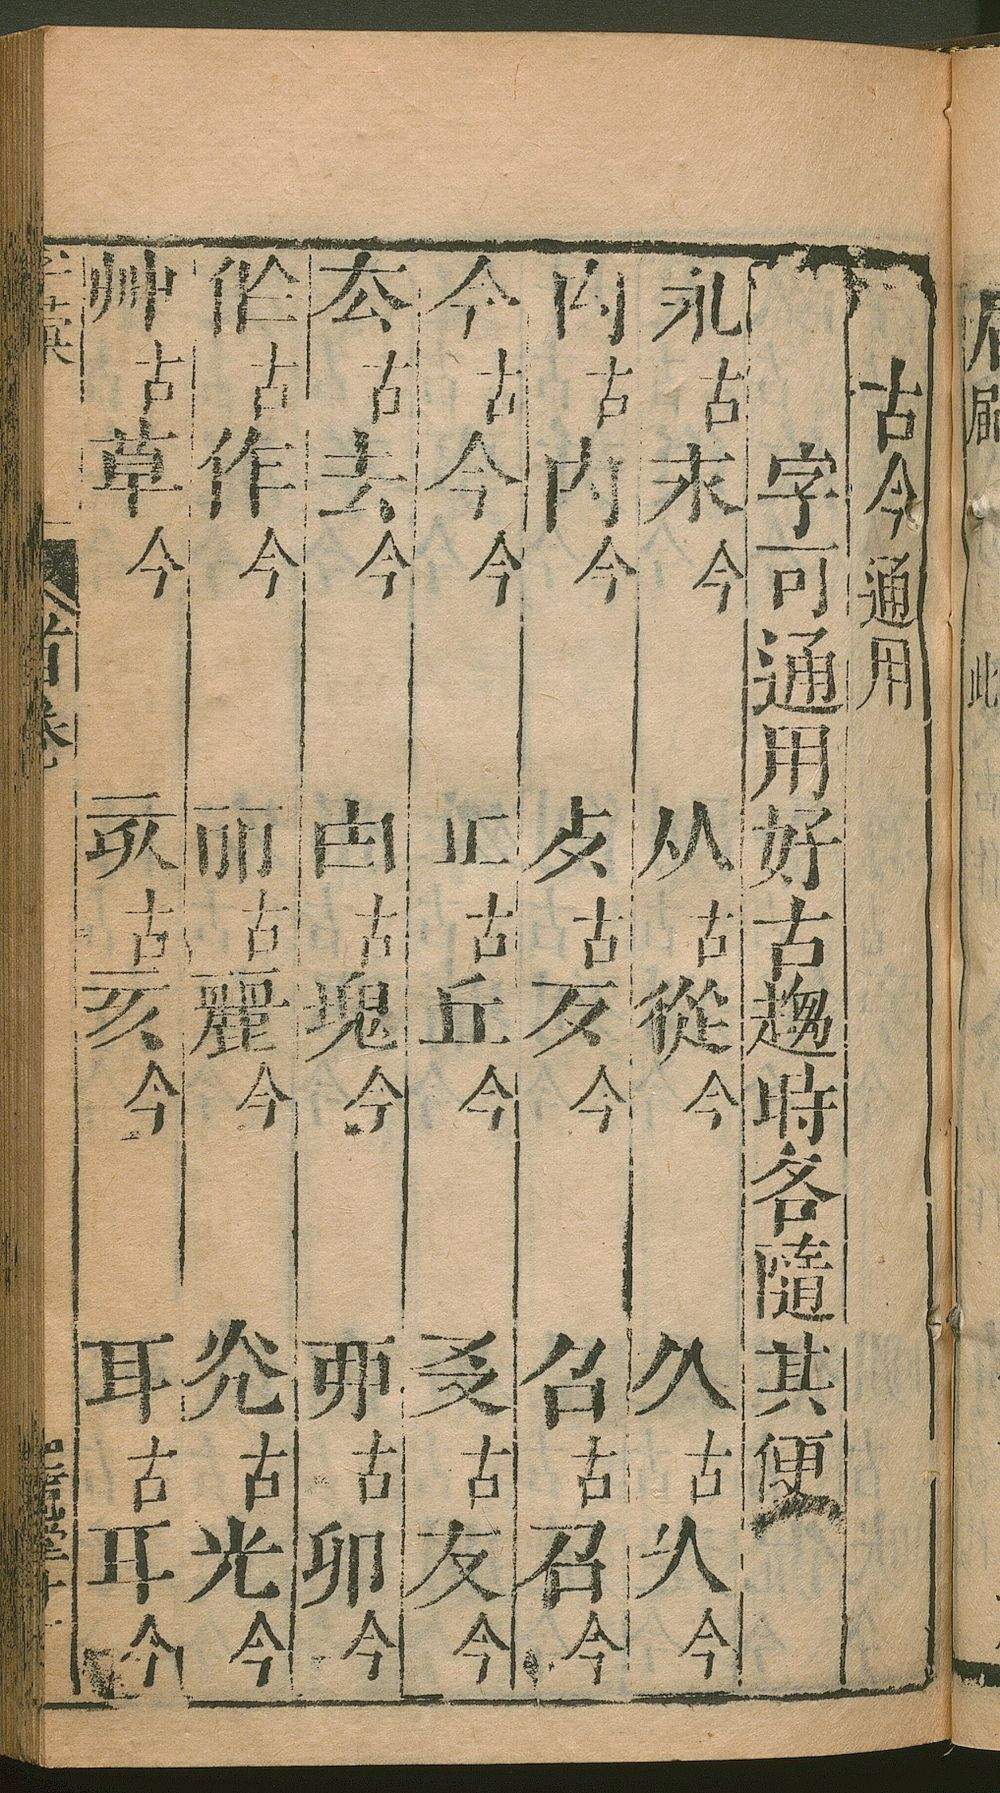 古今通用
字可通用好古趨時各隨其便
永古求今 从古從今 久古久今
内古內今 歺古歹今 召古召今
今古今今 㐀古丘今 㕛古友今
厺古去今 凷古塊今 丣古卯今
㑅古作今 丽古麗今 灮古光今
艸古草今 亥今 耳古耳今